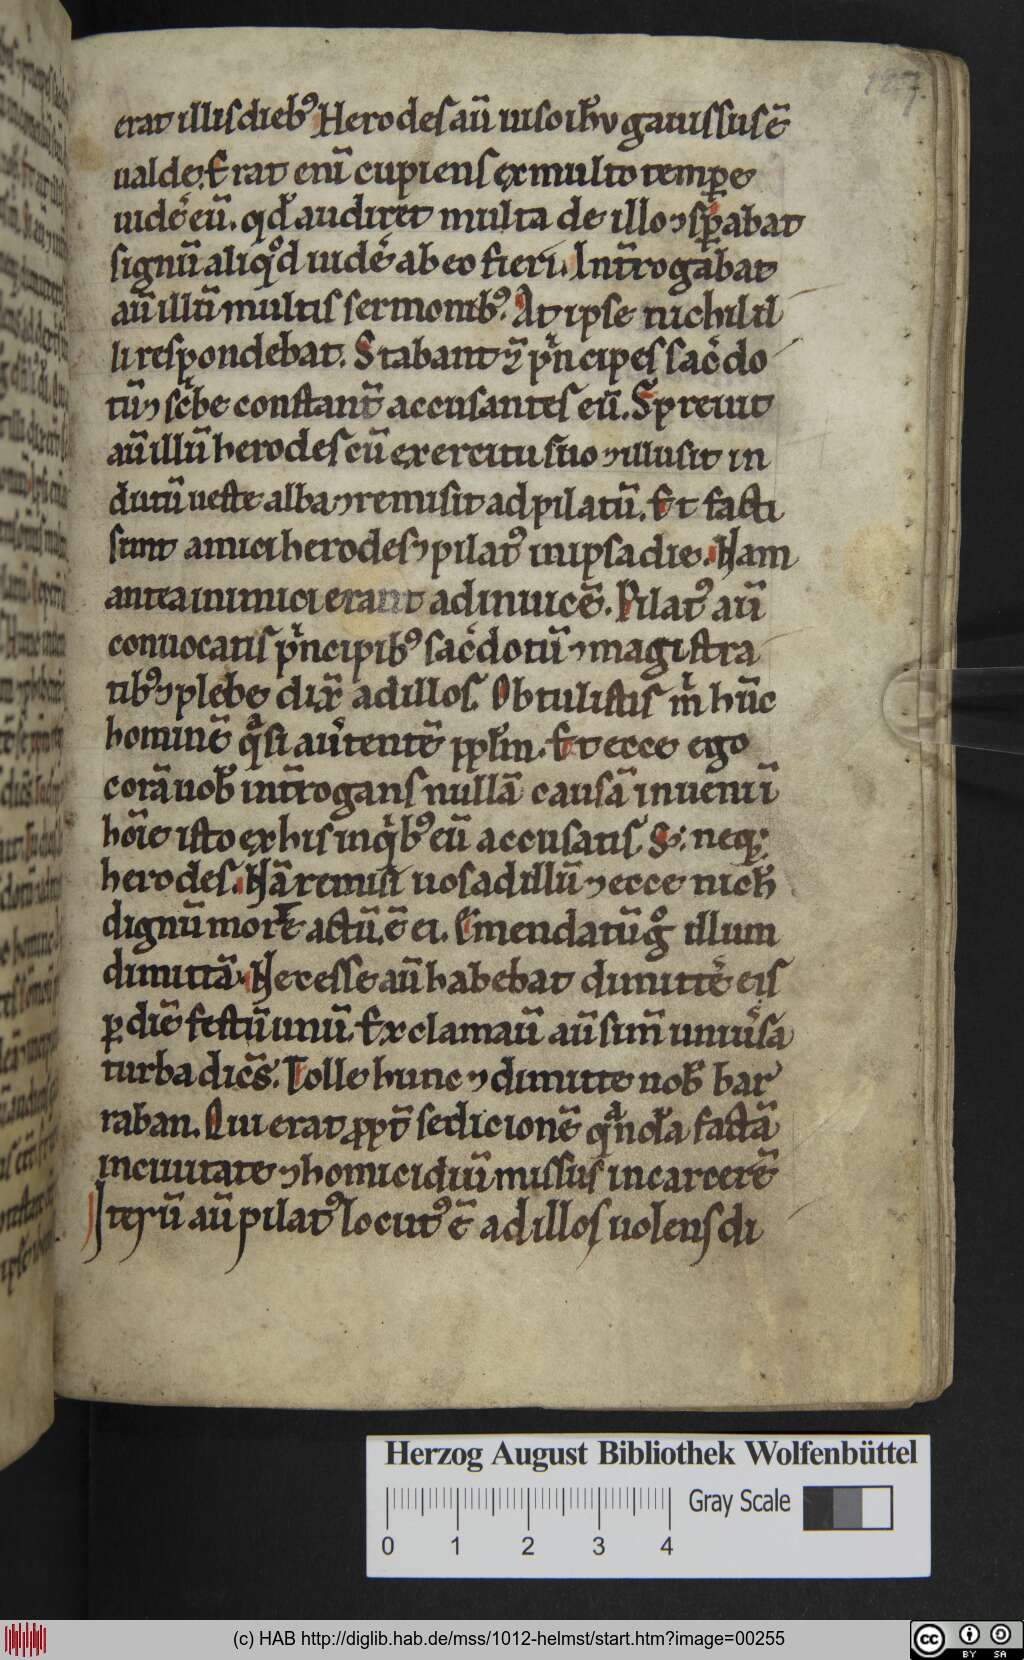 127.
erat illis diebꝰ Herodes aū uiso ih̄u gauisus ē
ualde. Erat enī cupiens ex multo tempe
uide͛ eū. qd̄ audiret multa de illo ⁊ sp̱abat
signū aliqͦd uide͛ ab eo fieri. Int̄rogabat
aū illū multis sermonibꝰ. At ipse nichil il
li respondebat. Stabant ⁊̄ pͥncipes sac͛do
tū ⁊ sc͛be constant͛ accusantes eū. Spreuit
aū illū herodes cū exercitu suo ⁊ illusit in
dutū ueste alba ⁊ remisit ad pilatū. Et facti
sunt amici herodes ⁊ pilatꝰ in ipsa die. Nam
antea inimici erant ad inuicē. Pilatꝰ aū
conuocatis pͥncipibꝰ sac͛dotū ⁊ magistra
tibꝰ ⁊ plebe dix̄ ad illos. Obtulistis m̥ hūc
hominē qͣsi au͛tentē pplm̄. Et ecce ego
corā uob̄ int̄rogans nullā causā inueni ī
hoīe isto ex his in qͥbꝰ eū accusatis. S; neq;
herodes. Nā remisi uos ad illū ⁊ ecce nich̄
dignū morte actū ē ei. Emendatū gͦ illum
dimittā. Necesse aū habebat dimitte͛ eis
ꝑ diē festū unū. Exclamaū aū simł uniu͛sa
turba dicēs. Tolle hunc ⁊ dimitte nob̄ bar
raban. Qui erat ꝓpt̄ sedicionē qͣndā factā
in ciuitate ⁊ homicidiū missus in carcerē
Iterū aū pilatꝰ locutꝰ ē ad illos uolens di
Herzog August Bibliothek Wolfenbüttel
Gray Scale
0 1 2 3 4
(c) HAB http://diglib.hab.de/mss/1012-helmst/start.htm?image=00255
cc BY SA